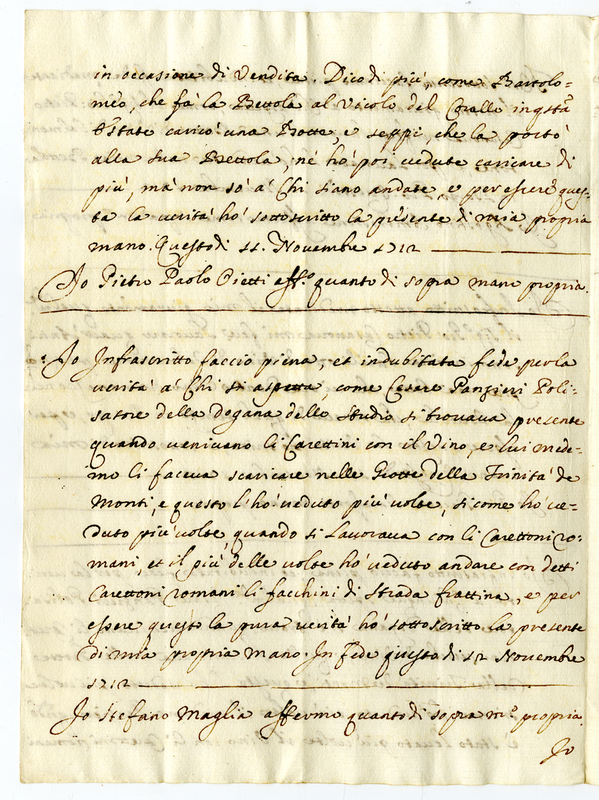 in occasione di Vendita. Dico di più, come Bartolo=
meo, che fà la Bettola al Vicolo del Cavallo in qsta
Estate caricò una Botte, e seppi, che la portò
alla sua Bettola, nè hò poi vedute caricare di
più, mà non sò à Chi siano andate, e per essere ques=
ta la verità hò sottoscritto la presente di mia propria
mano. Questo dì 11. Novembre 1712
Jo Pietro Paolo Pietti affo. quanto di sopra mano propria.
Jo Infrascritto faccio piena, et indubitata fede per la
verità à Chi si aspetta, come Cesare Panzieri Poli=
satore della Dogana dello Studio si trovava presente
quando venivano li Carettini con il Vino, e lui mede=
mo li faceva scaricare nelle Grotte della Trinità de
Monti, e questo l'hò veduto più volte, si come hò ve=
duto più volte, quando si Lavorava con li Carettoni ro=
mani, et il più delle volte hò veduto andare con detti
Carettoni romani li facchini di Strada frattina, e per
essere questo la pura verità hò sottoscritto la presente
di mia propria mano. In Fede questo dì 12 Novembre
1712
Jo Stefano Maglia affermo quanto di sopra mo. propria.
Jo